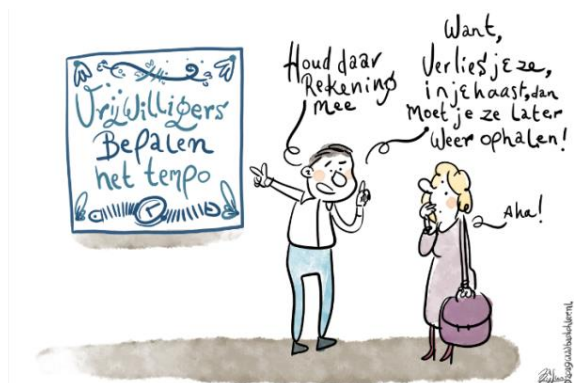 Vrijwilligers
Bepalen
het tempo
Houd daar
Rekening
mee
Want,
Verlies je ze,
in je haast, dan
Moet je ze later
Weer ophalen!
Aha!